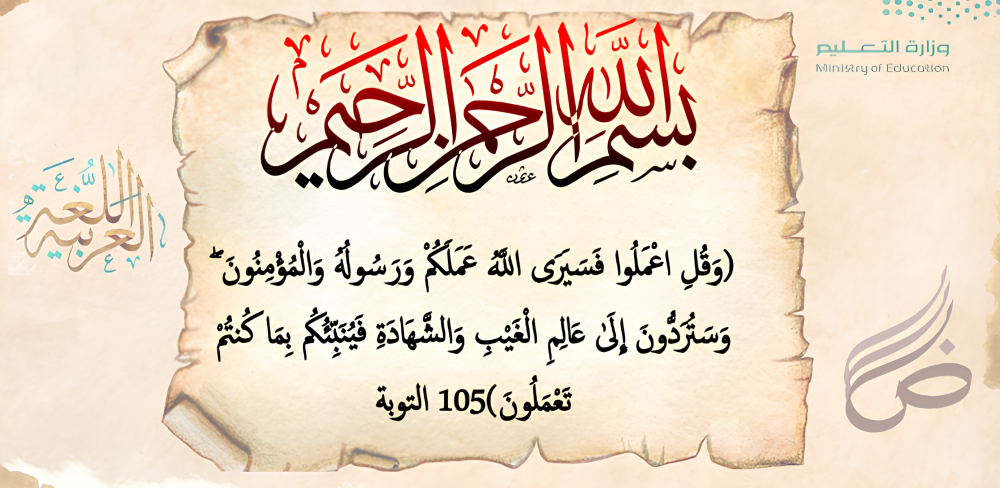 وزارة التعليم
Ministry of Education
بسم الله الرحمن الرحيم
اللغة العربية
(وَقُلِ اعْمَلُوا فَسَيَرَى اللَّهُ عَمَلَكُمْ وَرَسُولُهُ وَالْمُؤْمِنُونَ ۖ
وَسَتُرَدُّونَ إِلَىٰ عَالِمِ الْغَيْبِ وَالشَّهَادَةِ فَيُنَبِّئُكُم بِمَا كُنتُمْ
تَعْمَلُونَ)105 التوبة
ض